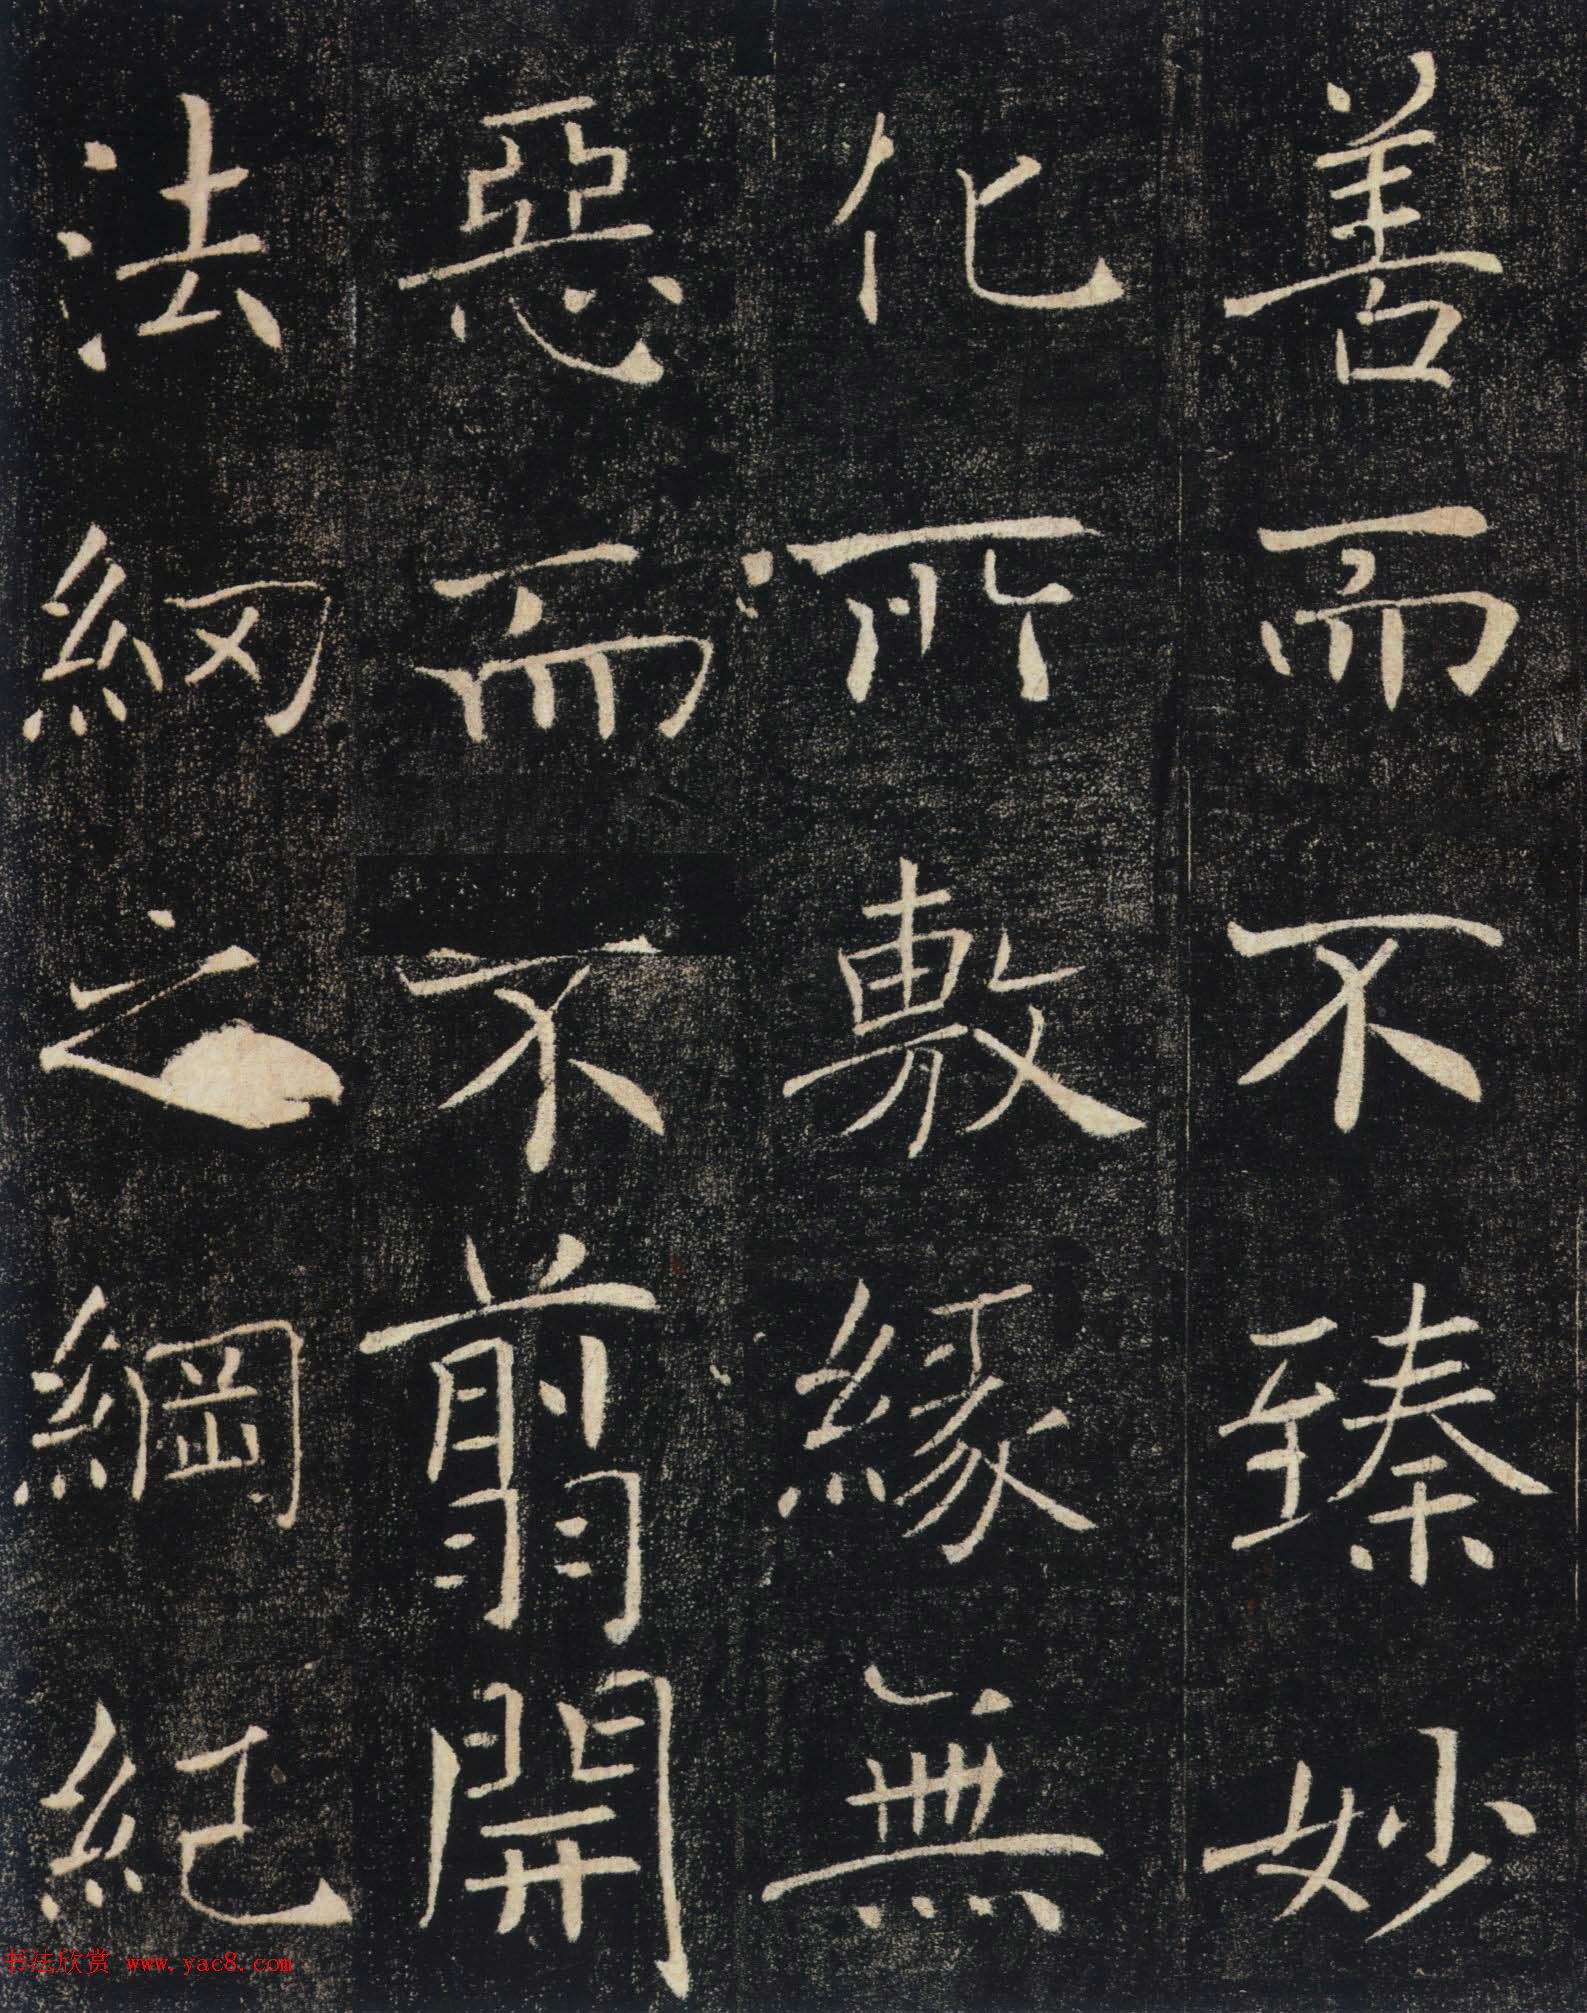 善而不臻妙
化所敷緣無
惡而不翦開
法網之綱紀
书法欣赏 www.yac8.com